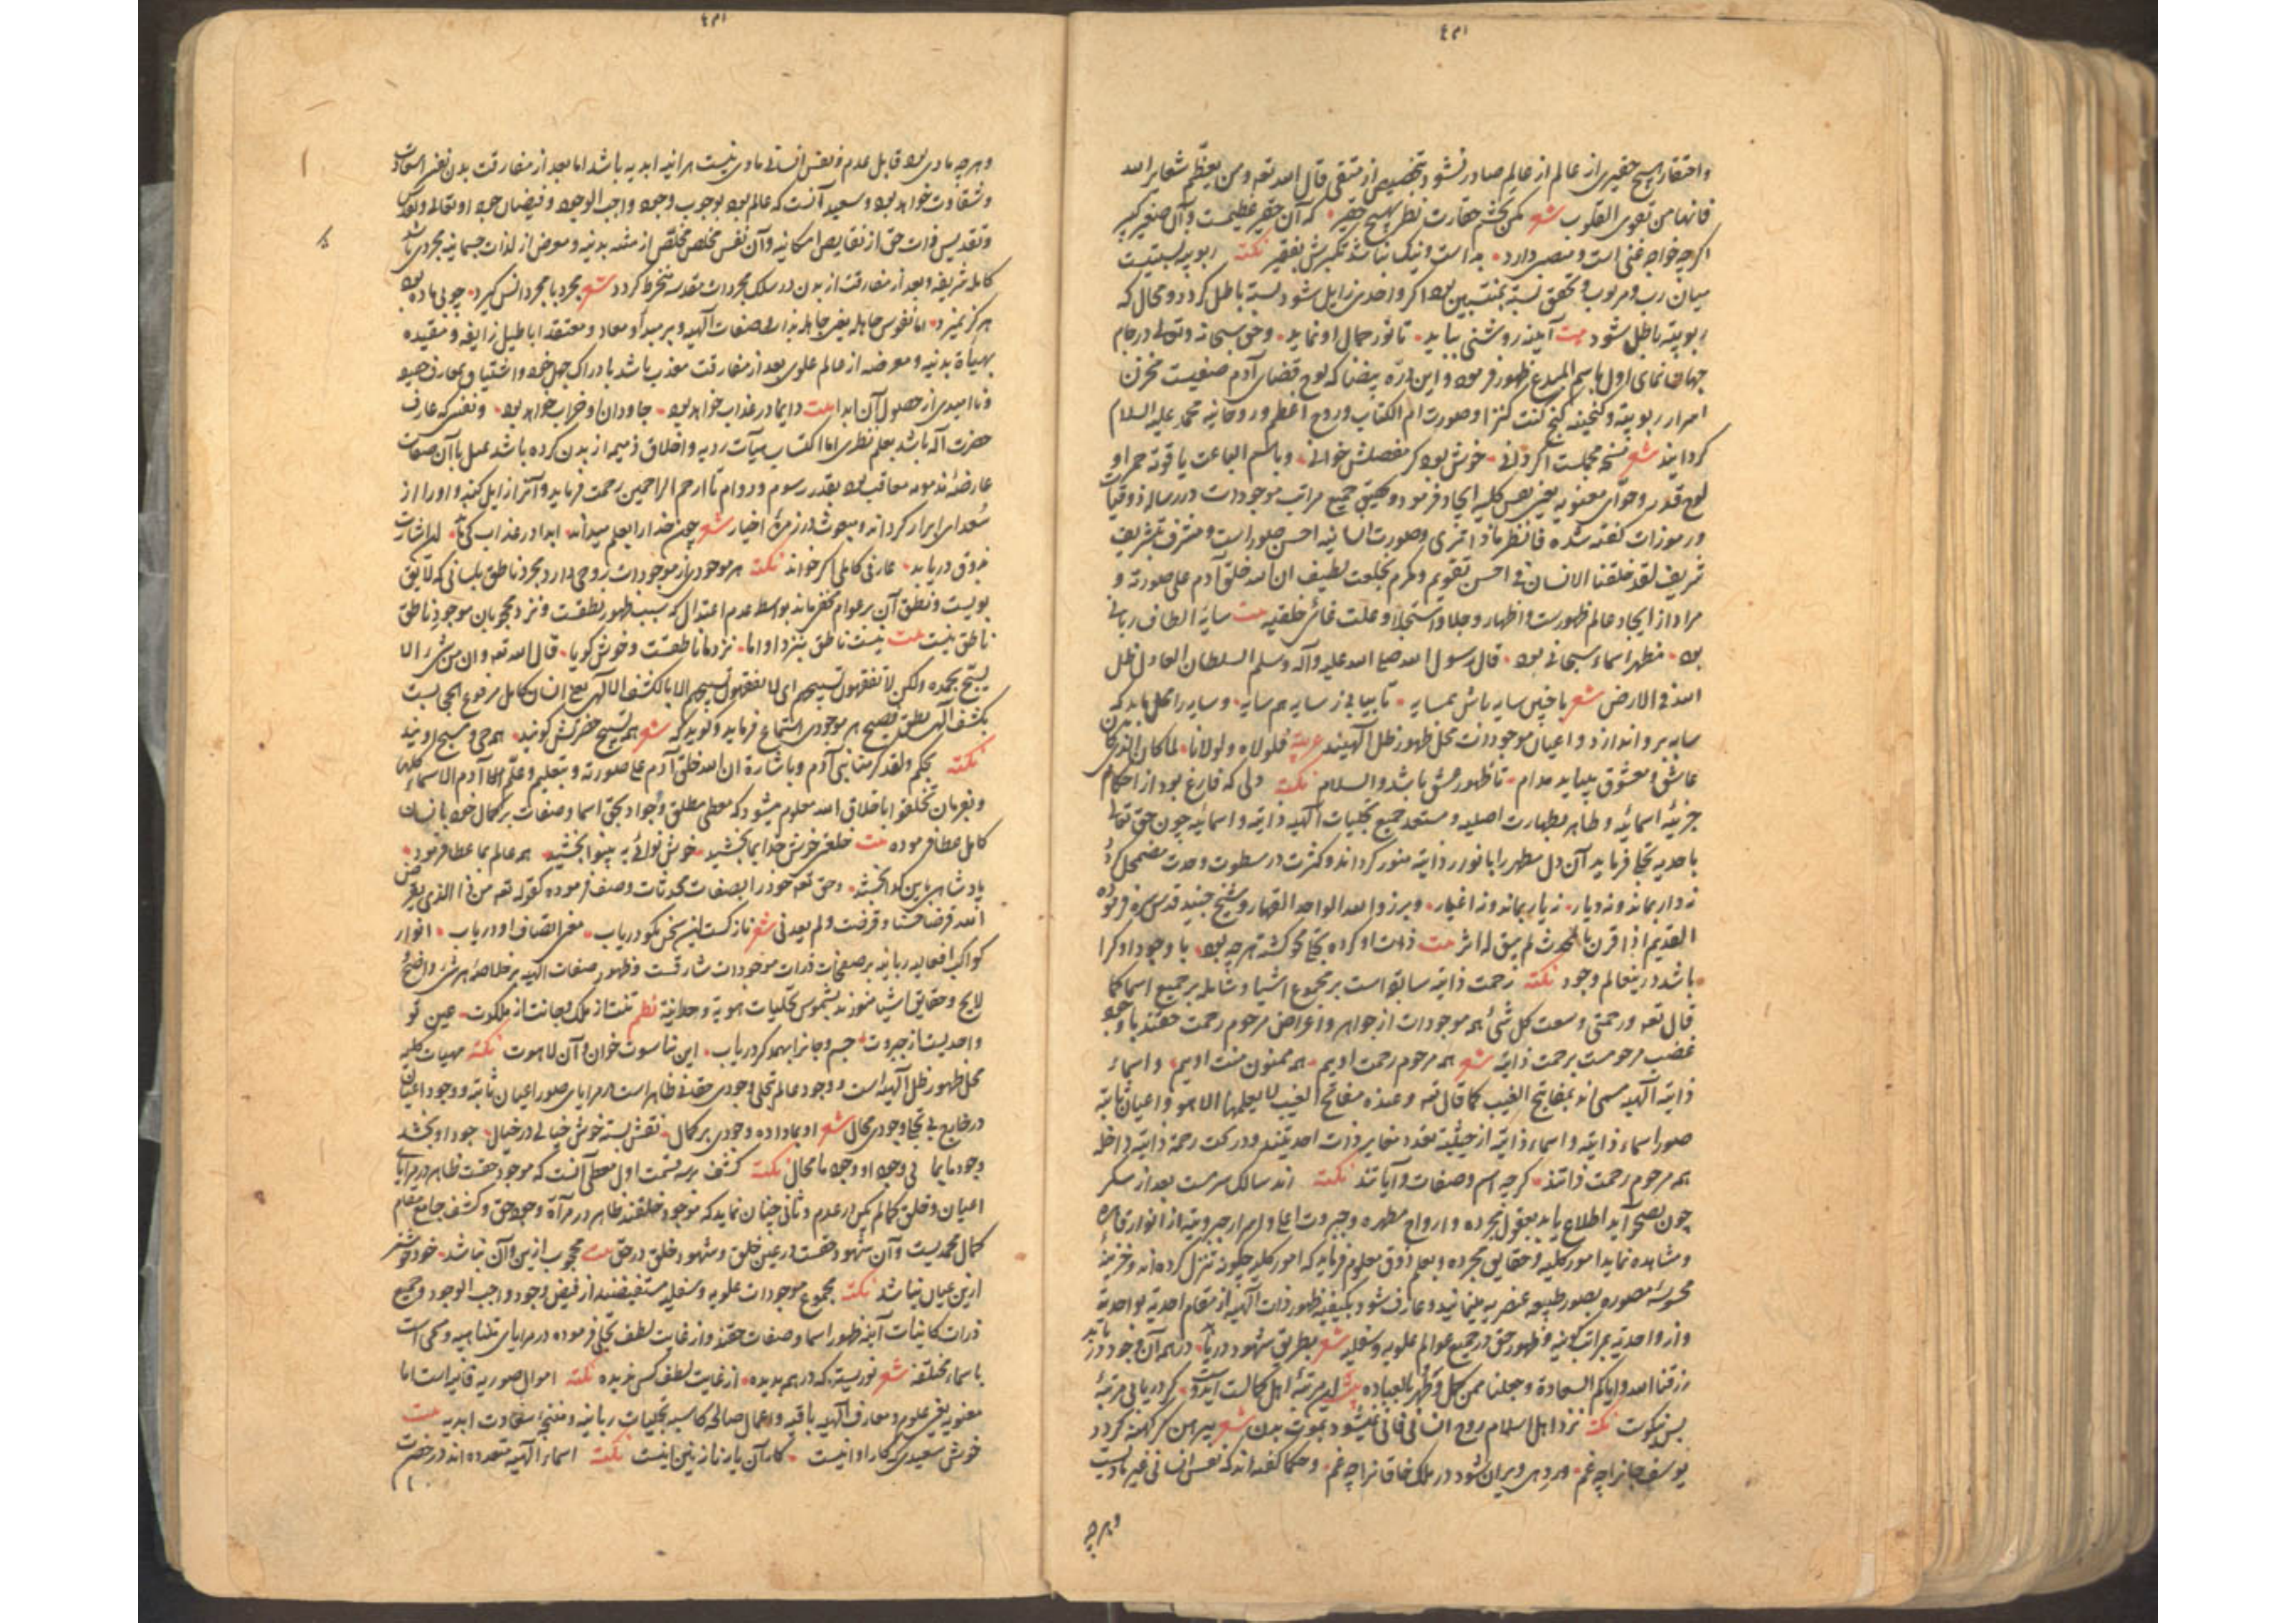 واحتقار هیچ حقیری از عالم از عالم صادر نشود بتخصیص از متقی قال الله تعه ومن یعظم شعایر الله
فانها من تقوی القلوب شعر مکن بچشم حقارت نظر بهیچ حقیر که آن حقیر عظیمست وآن صغیر کبیر
اکرچه خواجه غنی است و منصبی دارد بد است و نیک نباشد تکبرش بفقیر نکته ربوبیه نسبتیست
میان رب و مربوب و تحقق نسبة بمنتسبین بود اکر واحدی زایل شود نسبة باطل کردد و محال که
ربوبیته باطل شود بیت آینه روشنی بباید تا نور جمال او نماید وحق سبحانه وتعالی در جام
جهان نمای اول باسم المبدع ظهور فرموده و این دره بیضا که لوح قضای آدم صفیست مخزن
اسرار ربوبیته و کنجینه کنج کنت کنزا وصورت ام الکتاب و روح اعظم و روحانیه محمد علیه السلام
کردانید شعر نسخه مجملست اکر دانی خوش بود کر مفصلش خوانی وباسم الباعث یاقوته حمرا و
لوح قدر وحوای معنویه یعنی نفس کلیه ایجاد فرمود و تحقیق جمیع مراتب موجودات در رساله ذوقیات
ورموزات کفته شده فانظر ماذا تری وصورت انسانیه احسن صور است و مشرف بتشریف
شریف لقد خلقنا الانسان فی احسن تقویم ومکرم بخلعت لطیف ان الله خلق آدم علی صورته و
مراد از ایجاد عالم ظهورست و اظهار وجلا واستجلا وعلت غائی خلقیه بیت سایه الطاف ربانی
بود مظهر اسماء سبحانی بود قال رسول الله صلی الله علیه وآله وسلم السلطان العادل ظل
الله فی الارض شعر با چنین سایه باش همسایه تا بیابی ز سایه هم سایه و سایه را محل باید که
سایه بر او اندازد و اعیان موجودات محل ظهور ظل الهیند عربیته فلولاه ولولانا لما کان الذی کان
عاشق و معشوق بباید مدام تا ظهور عشق باشد والسلام نکته دلی که فارغ بود از احکام
جزئیه اسمائیه و طاهر بطهارت اصلیه و مستعد جمیع تجلیات الهیه ذاتیه و اسمائیه چون حق تعالی
باحدیه تجلی فرماید آن دل مطهر را بانوار ذاتیه منور کرداند و کثرت در سطوت وحدت مضمحل کردد
نه دار بماند و نه دیار نه یار بماند و نه اغیار وبرزوا لله الواحد القهار و شیخ جنید قدس سره فرموده
القدیم اذا قرن بالمحدث لم یبق له اثر بیت ذات او کرده تجلی محو کشته هرچه بود با وجود او کرا
باشد درین عالم وجود نکته رحمت ذاتیه سابق است بر مجموع اشیا و شامله بر جمیع اسما کما
قال تعه ورحمتی وسعت کل شئ همه موجودات از جواهر و اعراض مرحوم رحمت حقند با وجود
غضب مرحومست برحمت ذاتیه شعر همه مرحوم رحمت اویم همه ممنون منت اویم و اسماء
ذاتیه الهیه مسمی اند بمفاتیح الغیب کما قال تعه وعنده مفاتح الغیب لا یعلمها الا هو و اعیان ثابته
صور اسماء ذاتیه و اسماء ذاتیه از حیثیته تعدد مغایر ذات احدیتند و در تحت رحمة ذاتیه داخله
همه مرحوم رحمت ذاتند کرچه اسم و صفات و آیاتند نکته اند سالک سرمست بعد از سکر
چون بصحو آید اطلاع یابد بعقول مجرده و ارواح مطهره و جبروت اعلی و اسرار جبروتیه از انوار قاهره
و مشاهده نماید امور کلیه و حقایق مجرده و بعلم ذوق معلوم فرماید که امور کلیه چکونه تنزل کرده اند و جزئیه
محسوسه مصوره بصور طبیعه عنصریه مینمایند و عارف شود بکیفیته ظهور ذات الهیه از مقام احدیه بواحدیه
و از واحدیه بمراتب کونیه و ظهور حق در جمیع عوالم علویه و سفلیه شعر بطریق شهود دریابد در همه آن وجود دریابد
رزقنا الله وایاکم السعادة وجعلنا ممن کمل وظهر بالعباده بیت این مرتبه اهل کمالست ایدوست کر دریابی مرتبه
بس نیکوست نکته نزد اهل اسلام روح انسانی فانی نمیشود بموت بدن شعر پیراهن کر کهنه کردد
یوسف جانرا چه غم ور دهی ویران شود در ملک خاقانرا چه غم و حکما کفته اند که نفس انسانی غیر مادیست
وهرچه
وهرچه مادی بود قابل عدم و نفس انسانی مادی نیست هر آینه ابدیه باشد اما بعد از مفارقت بدن نفس را سعادت
وشقاوت خواهد بود وسعید آنست که عالم بود بوجوب وجود واجب الوجود وفیضان جود او تعالی وتقدس
وتقدیس ذات حق از نقایص امکانیه وآن نفس مخلص مخلص از مشبه بدنیه ومعرض از لذات جسمانیه مجردی باشد
کامله شریفه وبعد از مفارقت از بدن در سلک مجردات مقدسه منخرط کردد شعر مجرد با مجرد انس کیرد چو بی ماده بود
هرکز نمیرد اما نفوس جاهله یعنی جاهله بذات وصفات الهیه وبر مبدأ ومعاد ومعتقد اباطیل زایفه ومقیده
بهیأة بدنیه ومعرضه از عالم علوی بعد از مفارقت معذب باشد بادراک جهل خود واشتیاق بمعارف حقیه
وناامیدی از حصول آن ابدا بیت دایما در عذاب خواهد بود جاودان او خراب خواهد بود ونفسی که عارف
حضرت اله باشد بعلم نظری اما اکتساب هیآت ردیه واخلاق ذمیمه از بدن کرده باشد عمل باآن صفات
عارضه مذمومه معاقب بود بقدر رسوم و دوام تا ارحم الراحمین رحمت فرماید وآنرا زایل کند و او را از
سعدای ابرار کرداند و مبعوث در زمره اخیار شعر چون خدا را بعلم میداند ابدا در عذاب کی ماند اشارت
ذوق دریابد عارفی کاملی اکر خواند نکته هر موجودی از موجودات روحی دارد مجرد ناطق بلسانی که لایق
بویست ونطق آن بر عوام مخفی ماند بواسطه عدم اعتدال که سبب ظهور نطقست ونزد محجوبان موجود ناطق
ناطق نیست بیت نیست ناطق بنزد او اما نزد ما ناطقست وخوش کویا قال الله تعه وان من شئ الا
یسبح بحمده ولکن لا تفقهون تسبیحهم ای لا تفقهون تسبیحهم الا بالکشف الالهی یعنی انسان کامل مرفوع الحجابست
بکشف الهی نطق فصیح هر موجودی استماع فرماید وکوید که شعر همه تسبیح حضرتش کویند همه حی ومسبح اویند
نکته بحکم ولقد کرمنا بنی آدم وباشارة ان الله خلق آدم علی صورته وبتعلیم وعلم آدم الاسماء کلها
وبفرمان تخلقوا باخلاق الله معلوم میشود که معطی مطلق وجواد بحق اسما وصفات بر کمال خود بانسان
کامل عطا فرموده بیت خلقتی خوش خدا بما بخشید خوش نوائی به بینوا بخشید همه عالم بما عطا فرمود
پادشاهی باین کدا بخشید وحق تعه خود را بصفات محدثات وصف فرموده کقوله تعه من ذا الذی یقرض
الله قرضا حسنا وقرضت ولم یعدنی شعر نازکست این سخن نکو دریاب معنی اتصاف او دریاب انوار
کواکب افعالیه ربانیه بر صفحات ذرات موجودات شارقست وظهور صفات الهیه بر خلاصه هر شئ واضح
لایح وحقایق اشیا منورند بشموس تجلیات هویه وحدانیة نظم تنت از ملک وجانت از ملکوت عین تو
واحدیست از جبروت جسم وجانرا بهم کر دریاب این ناسوت خوان وآن لاهوت نکته مهیات کلیه
محل ظهور ظل الهیه است ووجود عالم تجلی وجودی حقه ظاهر است در مرایای صور اعیان ثابته ووجود اعیان
در خارج بی تجلی وجودی محال شعر او بما داده وجودی بر کمال نقش بسته خوش خیالی در خیال جود او بخشد
وجود ما بما بی وجود او وجود ما محال نکته کشف بر سه قسمت اول معطی آنست که موجود حقست ظاهر در مرایای
اعیان وخلق کما لم یکن در عدم وثانی چنان نماید که موجود خلقند ظاهر در مرآة وجود حق وکشف جامع مقام
کمال محمدیست وآن شهود حقست در عین خلق وشهود خلق در حق بیت محجوب ازین وآن نباشد خود خوشتر
ازین عیان نباشد نکته مجموع موجودات علویه وسفلیه مستفیضند از فیض وجود واجب الوجود وجمیع
ذرات کاینات آینه ظهور اسما وصفات حقند واز غایت لطف تجلی فرموده در مرایای متناهیه ومحمی است
باسماء مختلفه شعر نوریست که در همه بدیده از غایت لطف کس ندیده نکته اموال صوریه فانیه است اما
معنویه یعنی علوم ومعارف الهیه باقیه واعمال صالحه کاسبه تجلیات ربانیه ومنتج سعادت ابدیه بیت
خوش سعیدی که کار او اینست کار آن یار نازنین اینست نکته اسماء الهیه متعدده اند در حضرت